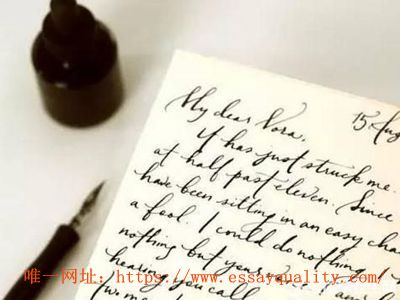 15 Aug
My dear Nora,
It has just struck me.
at half past eleven. Since
have been sitting in an easy chai
a fool. I could do nothing. I
nothing but your
hearing you call
唯一网址：https://www.essayquality.com/
two